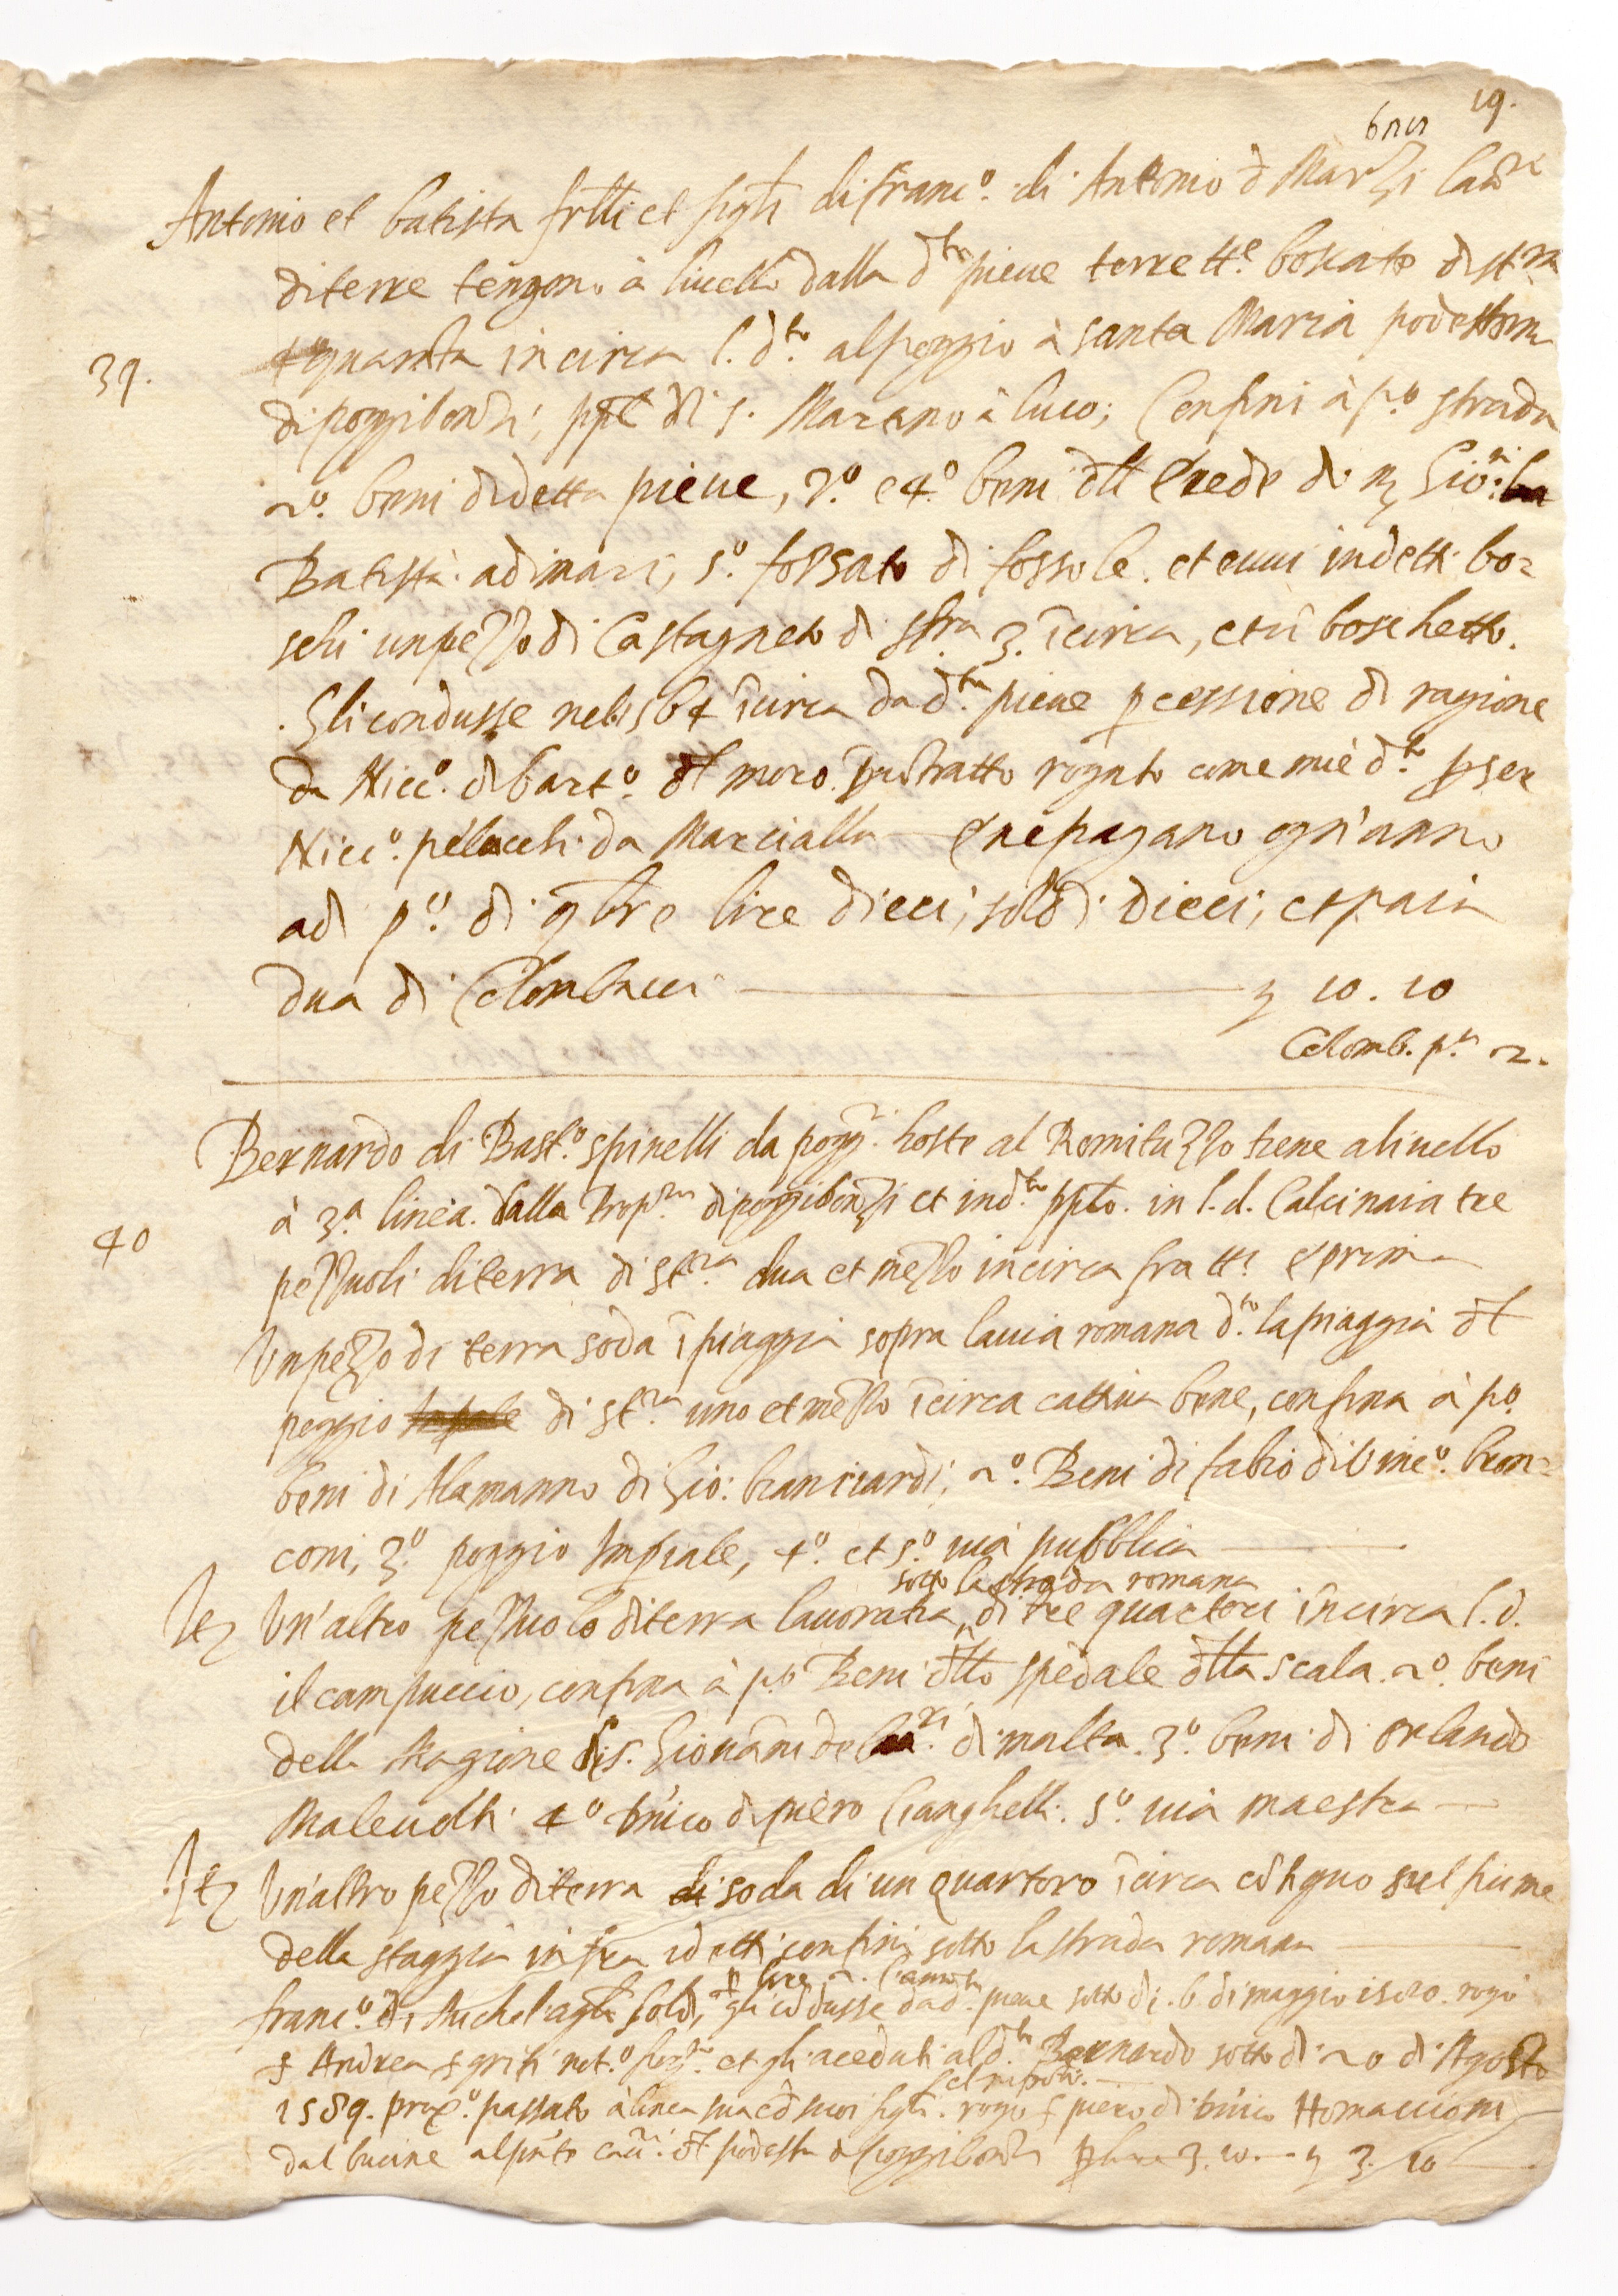 19.
Antonio et batista frlli et figli di franc.o di Antonio d Marzi
di terre tengono à livello dalla d.ta pieve terre tt.e boscate di st.ra
39.
quaranta incirca l. d.to al poggio à santa Maria podesteria
di poggibonzi, pplo di s. Martino à luco; Confini à p.o strada
2.o beni di detta pieve, 3.o e 4.o beni dll Erede di m Gio:
Batista adimari, 5.o fossato di fossole. et evvi in detti bo=
schi un pezzo di Castagneto di st.ra 3. īcirca, et ū boschetto.
Gli condusse nel 1564 īcirca da d.ta pieve p cessione di ragione
da Nicc.o di bart.o dl moro. contratto rogato come mi è d.to p ser
Nicc.o pelacchi da Marcialla e ne pagano ogn'anno
adi p.o di 9bre lire dieci, soldi dieci, et paia
dua di Colombacci 10 . 10
Colomb. p.a 2.
Bernardo di Bast.o spinelli da pogg.i hoste al Romituzzo tiene a livello
à 3.a linea. dalla Prop.ra di poggibonzi et in d.to pplo. in l. d. Calcinaia tre
40
pezzuoli di terra di st.ra dua et mezzo incirca fra tt.i e prima
Un pezzo di terra soda ī piaggia sopra la via romana d.to la piaggia dl
poggio di st.ra uno et mezzo īcirca cattivo bene, confina à p.o
beni di Alamanno di Gio: branciardi; 2.o Beni di fabio di Vinc.o bron=
coni, 3.o poggio Impiale, 4.o et 5.o via pubblica
sotto la strada romana
Itz Un'altro pezzuolo di terra lavoratia, di tre quartori īncirca l. d.
il campuccio, confina à p.o Beni dllo spedale dlla scala. 2.o beni
della Magione di s. Giovāni di malta. 3.o beni di Orlando
Malevolti 4.o d piero Cianghelli. 5.o via maestra
Itz Un'altro pezzo di terra soda di un quartoro īcirca cōtiguo sul fiume
della staggia infra i detti confini sotto la strada romana
p lire 2. l'anno
franc.o di Michel'agl.o soldi, gli cōdusse da d.ta pieve sotto di .6 di maggio 1520. rogò
s Andrea sgrifi not.o et gli à ceduti al d.to Bernardo sotto di 20 di Agosto
et nipoti.
1589. prox.o passato à linea sua cō suoi figli. rogò s piero di Homaccioni
dal bucine al pn̄te dl podestà d poggibonzi p lire 3.10. 3. 10